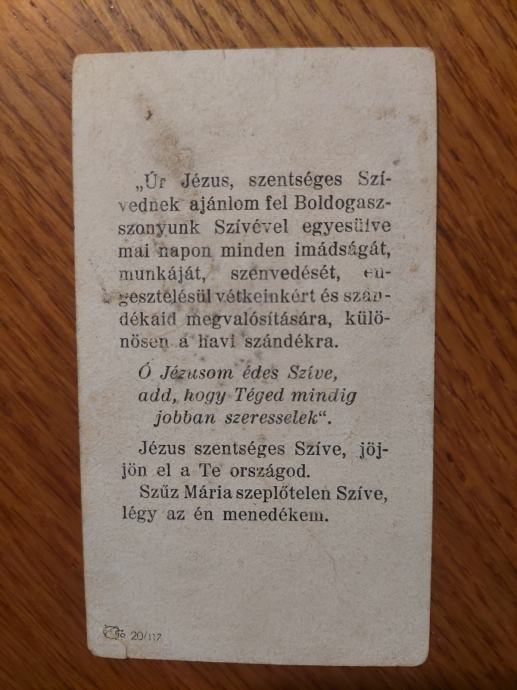 „Úr Jézus, szentséges Szí-
vednek ajánlom fel Boldogasz-
szonyunk Szívével egyesülve
mai napon minden imádságát,
munkáját, szenvedését, en-
gesztelésül vétkeinkért és szán-
dékaid megvalósítására, külö-
nösen a havi szándékra.
Ó Jézusom édes Szíve,
add, hogy Téged mindig
jobban szeresselek“.
Jézus szentséges Szíve, jöj-
jön el a Te országod.
Szűz Mária szeplőtelen Szíve,
légy az én menedékem.
20/117